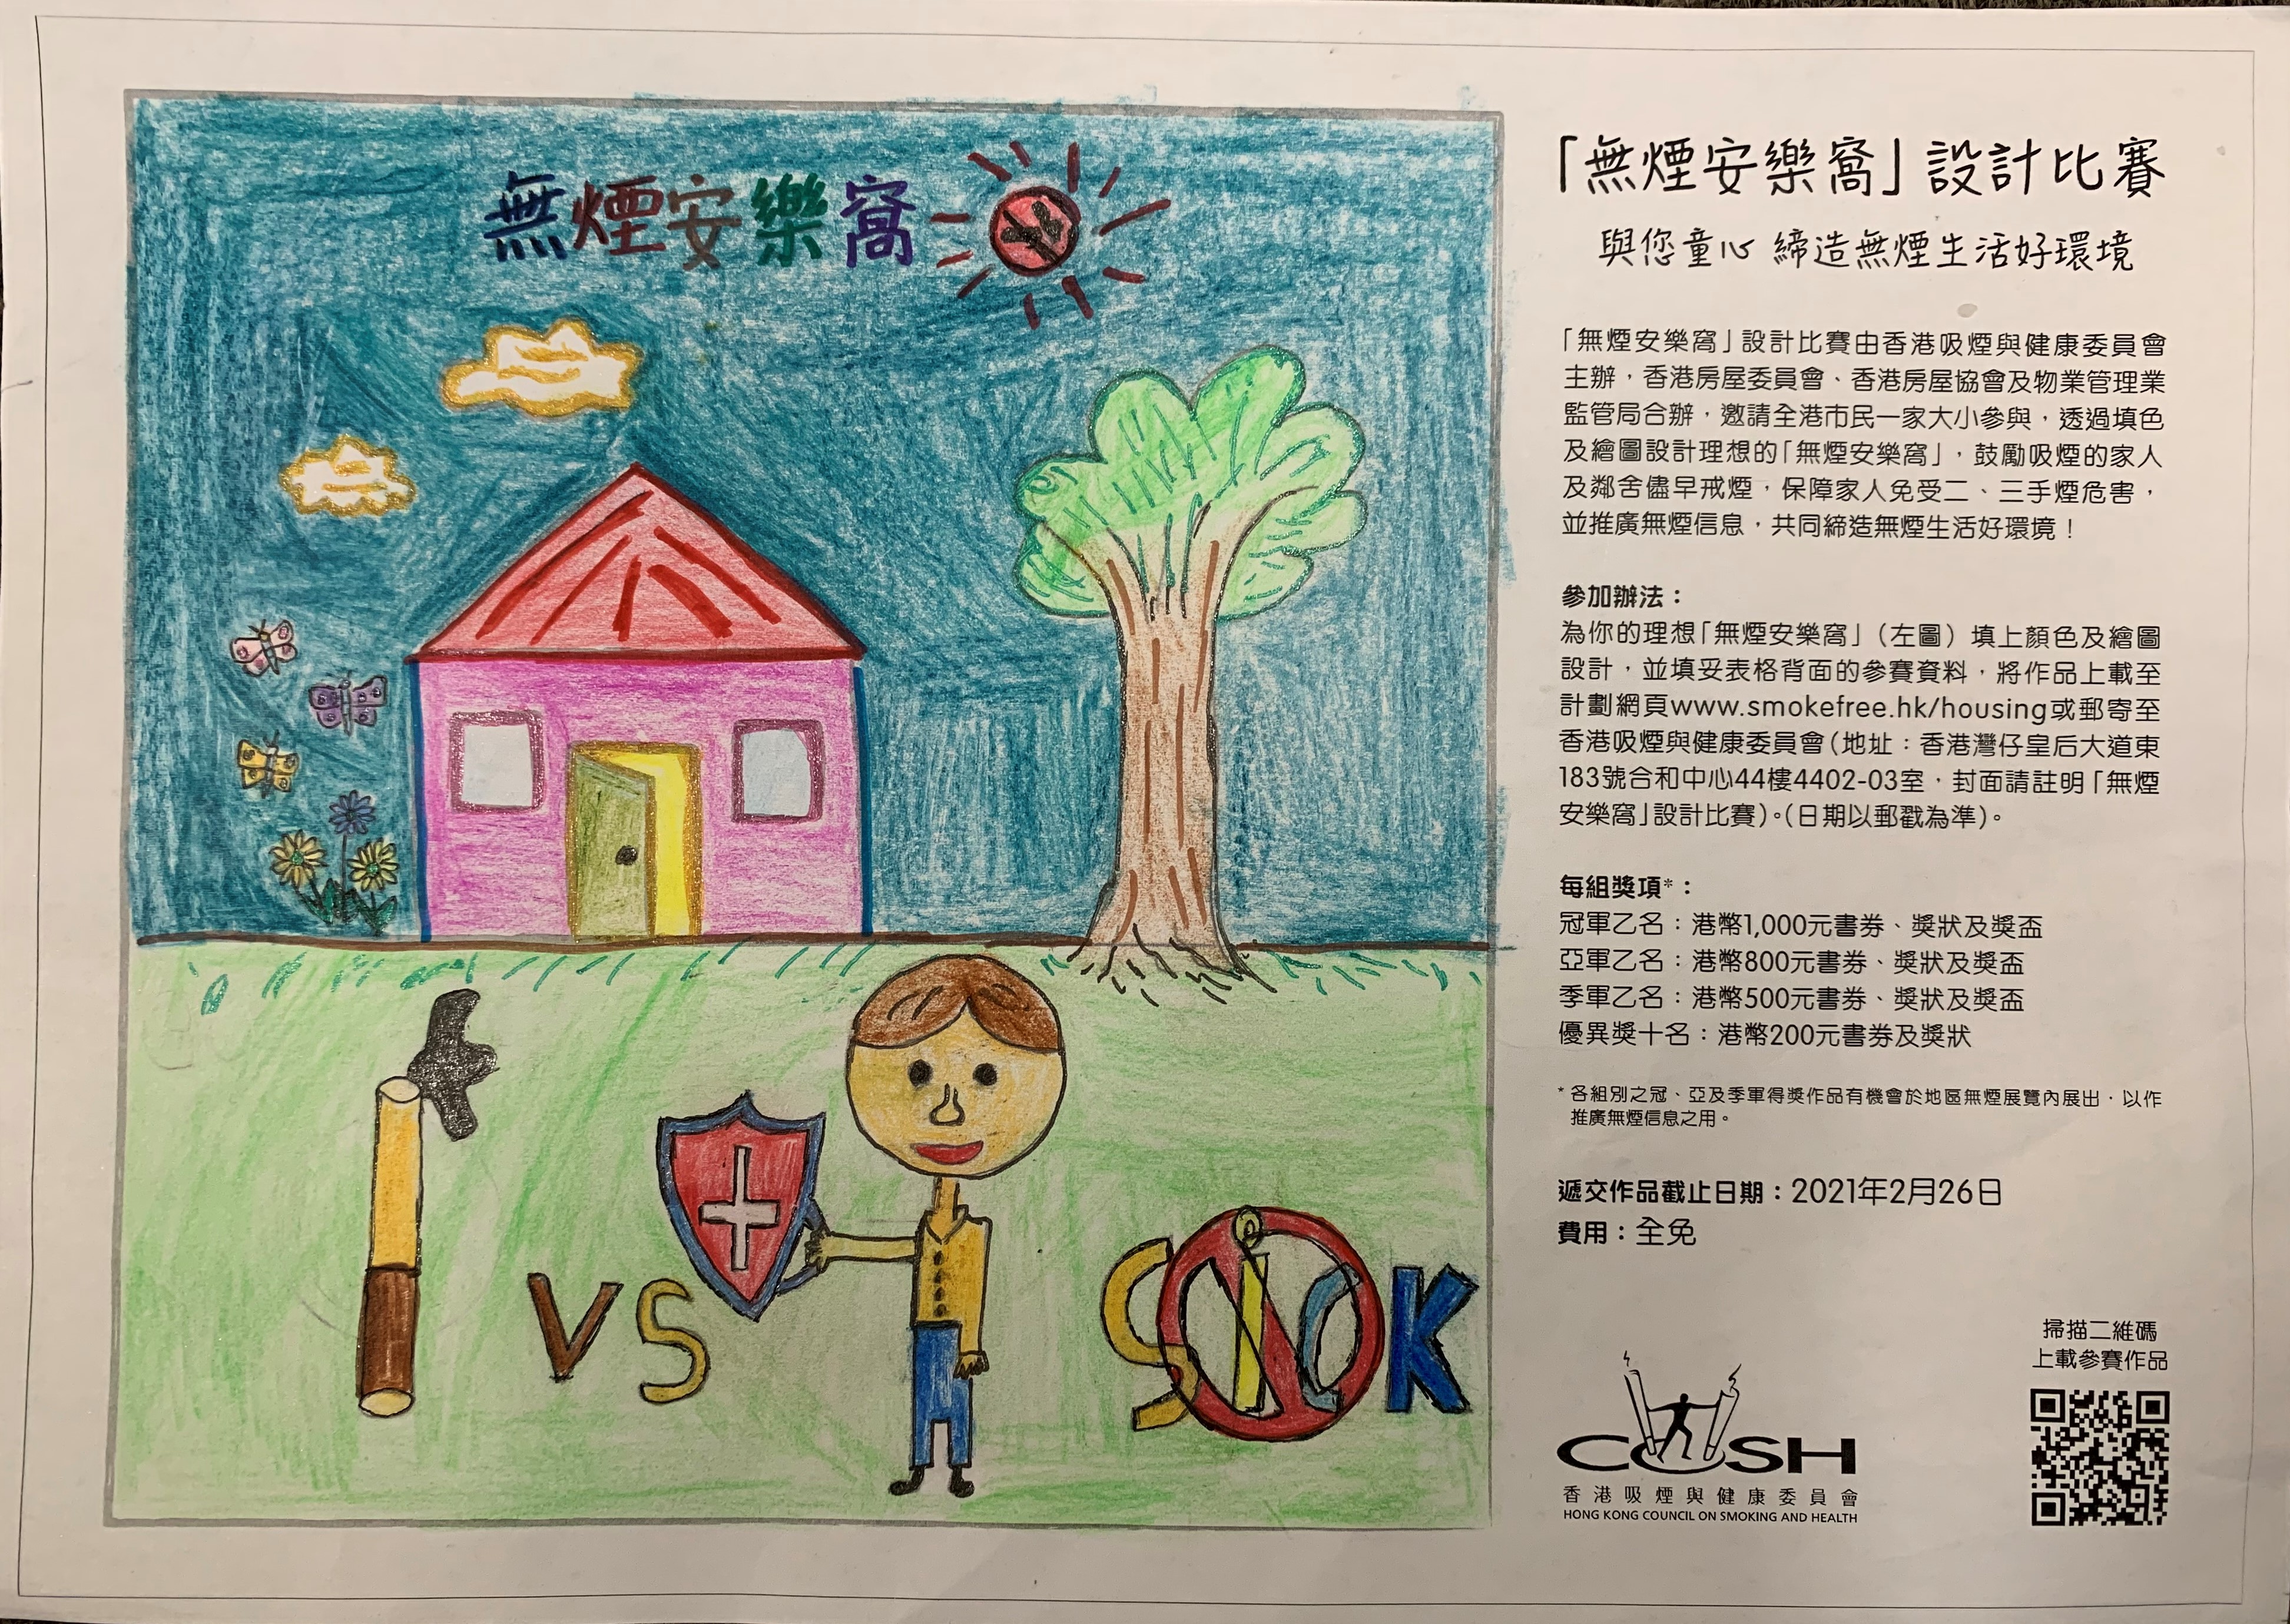 無煙安樂窩
VS
SICK
「無煙安樂窩」設計比賽
與您童心 締造無煙生活好環境
「無煙安樂窩」設計比賽由香港吸煙與健康委員會
主辦，香港房屋委員會、香港房屋協會及物業管理業
監管局合辦，邀請全港市民一家大小參與，透過填色
及繪圖設計理想的「無煙安樂窩」，鼓勵吸煙的家人
及鄰舍儘早戒煙，保障家人免受二、三手煙危害，
並推廣無煙信息，共同締造無煙生活好環境！
參加辦法：
為你的理想「無煙安樂窩」（左圖）填上顏色及繪圖
設計，並填妥表格背面的參賽資料，將作品上載至
計劃網頁www.smokefree.hk/housing或郵寄至
香港吸煙與健康委員會（地址：香港灣仔皇后大道東
183號合和中心44樓4402-03室，封面請註明「無煙
安樂窩」設計比賽）。（日期以郵戳為準）。
每組獎項*：
冠軍乙名：港幣1,000元書券、獎狀及獎盃
亞軍乙名：港幣800元書券、獎狀及獎盃
季軍乙名：港幣500元書券、獎狀及獎盃
優異獎十名：港幣200元書券及獎狀
* 各組別之冠、亞及季軍得獎作品有機會於地區無煙展覽內展出，以作
推廣無煙信息之用。
遞交作品截止日期：2021年2月26日
費用：全免
掃描二維碼
上載參賽作品
COSH
香港吸煙與健康委員會
HONG KONG COUNCIL ON SMOKING AND HEALTH